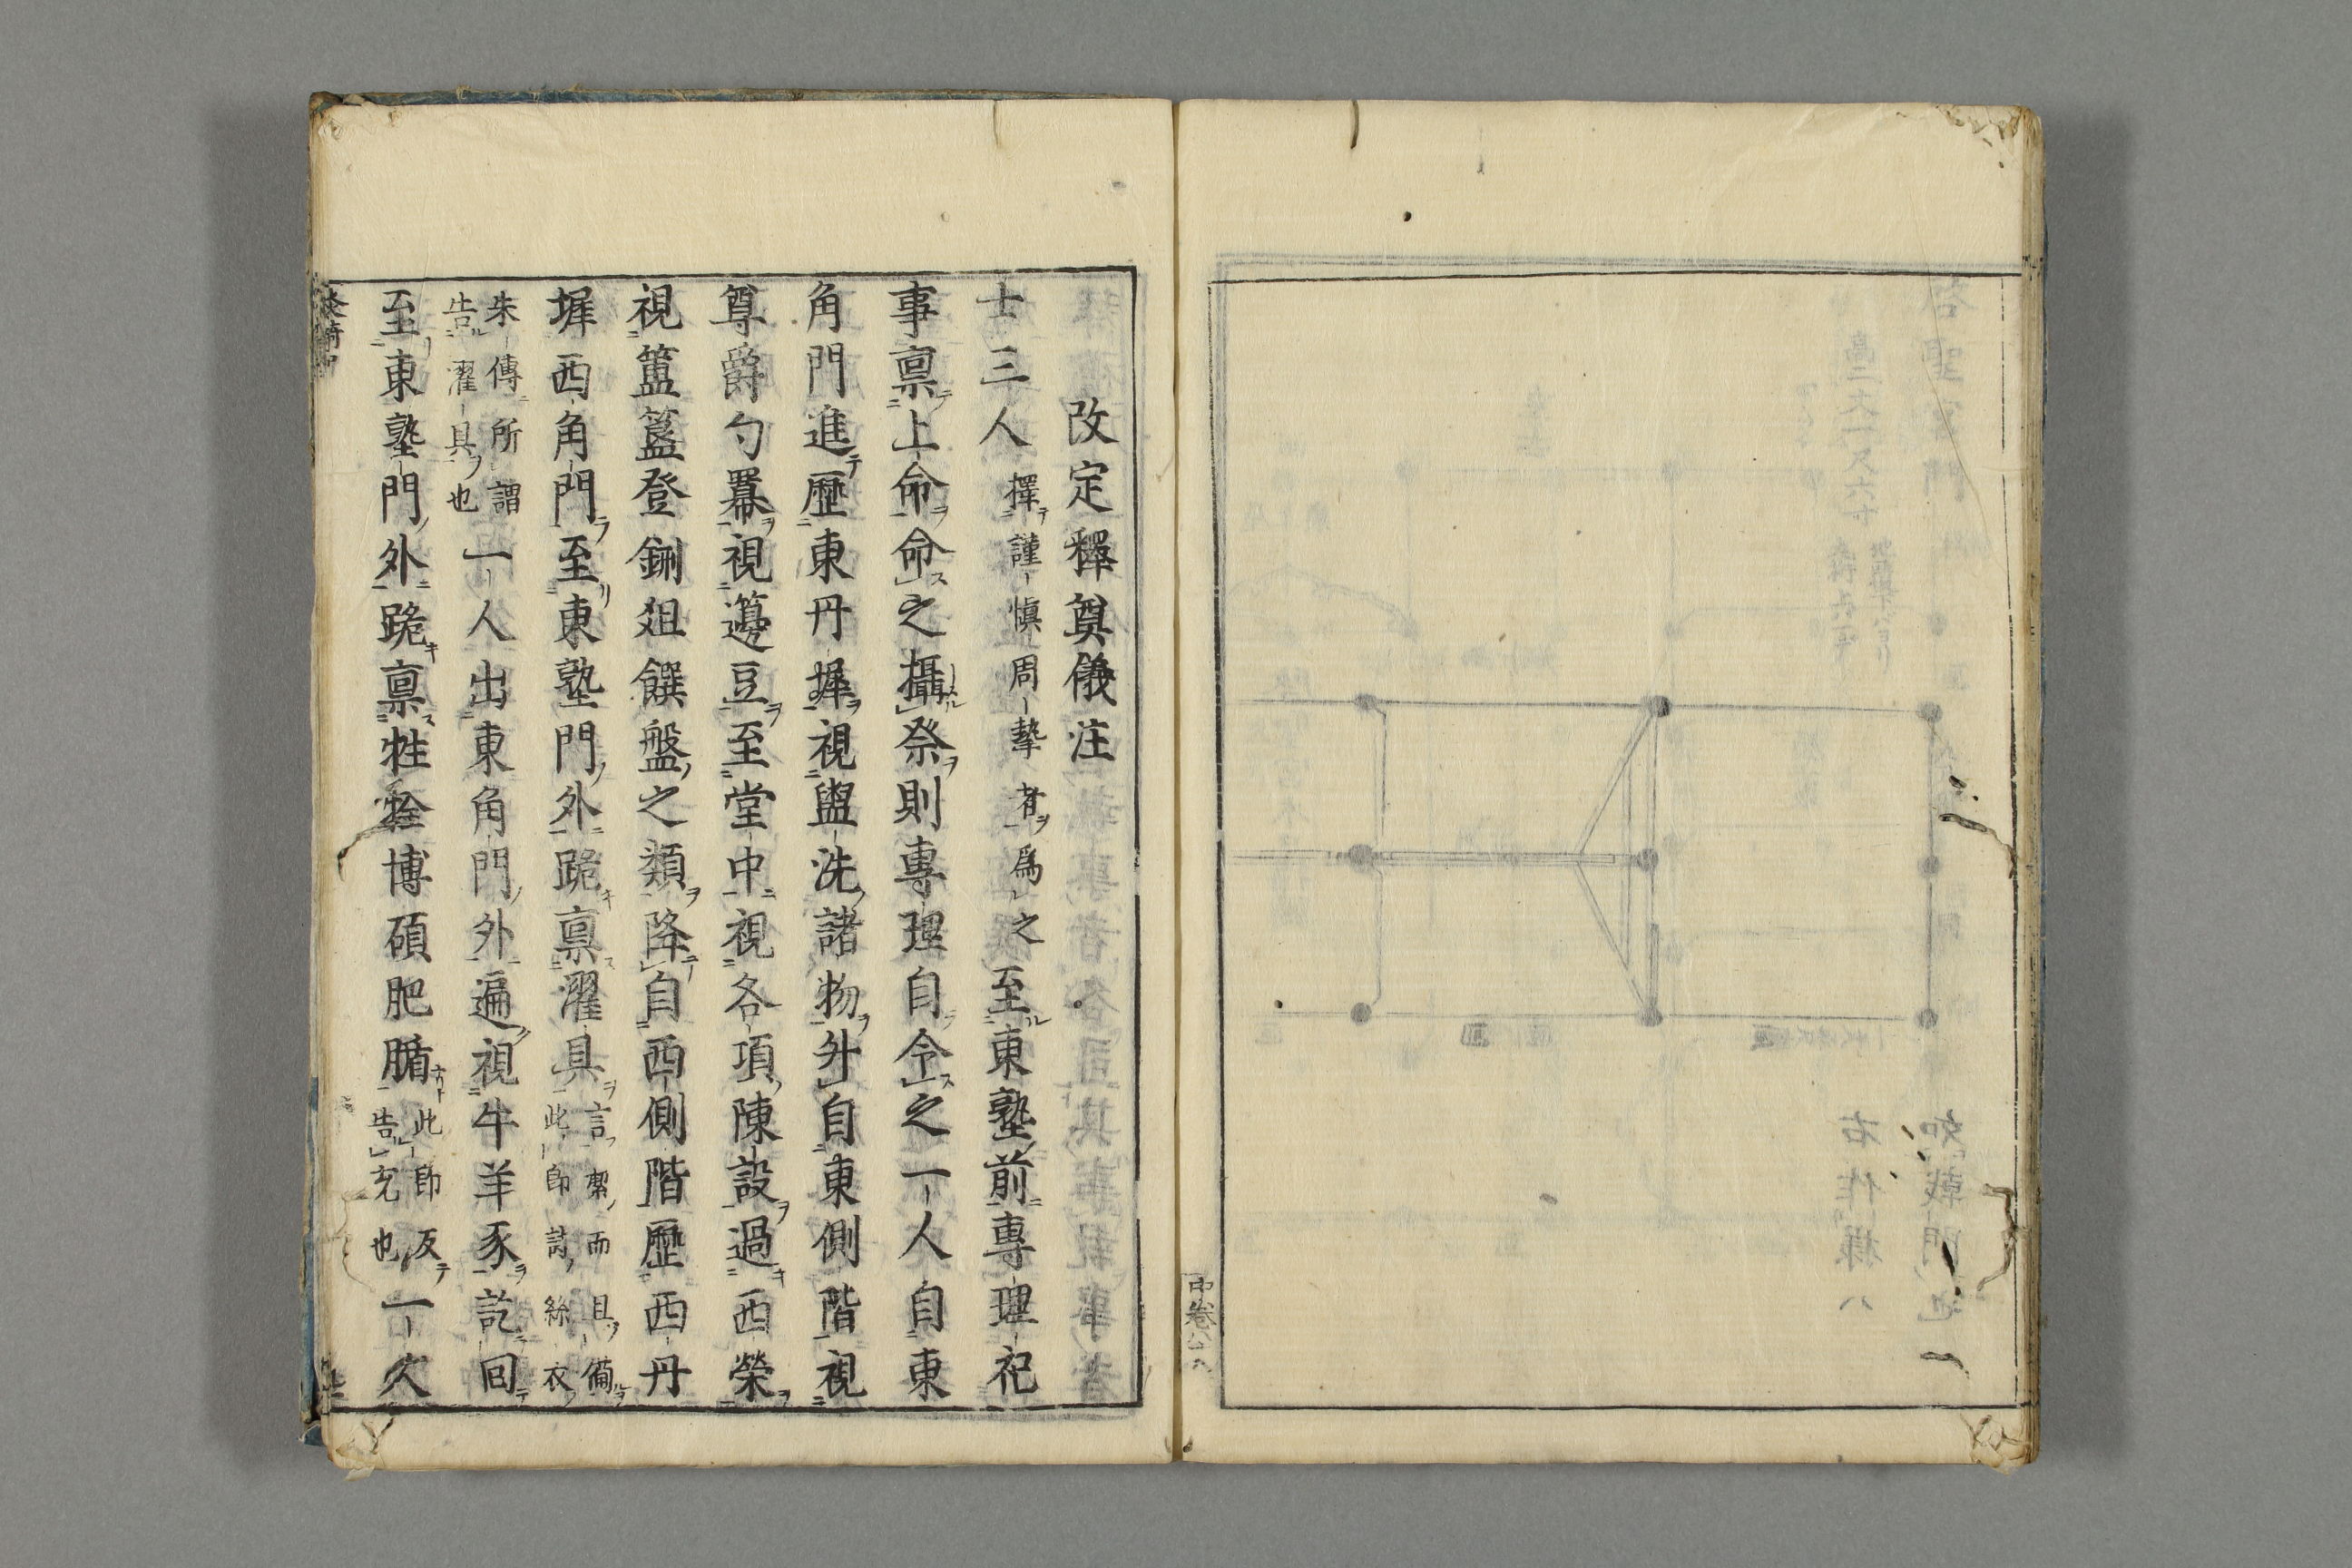 改定釋奠儀注
士三人擇謹愼周摯者爲之至東塾前專理祀
事禀上命命之攝祭則專理自令之一人自東
角門進歷東丹墀視盥洗諸物升自東側階視
尊爵勺羃視籩豆至堂中視各項陳設過西榮
視簠簋登鉶俎饌盤之類降自西側階歷西丹
墀西角門至東塾門外跪禀濯具言潔而且備
此即詩絲衣
朱傳所謂
告濯具也一人出東角門外遍視牛羊豕訖回
至東塾門外跪禀牲牷博碩肥腯此即反
告充也一人
中卷